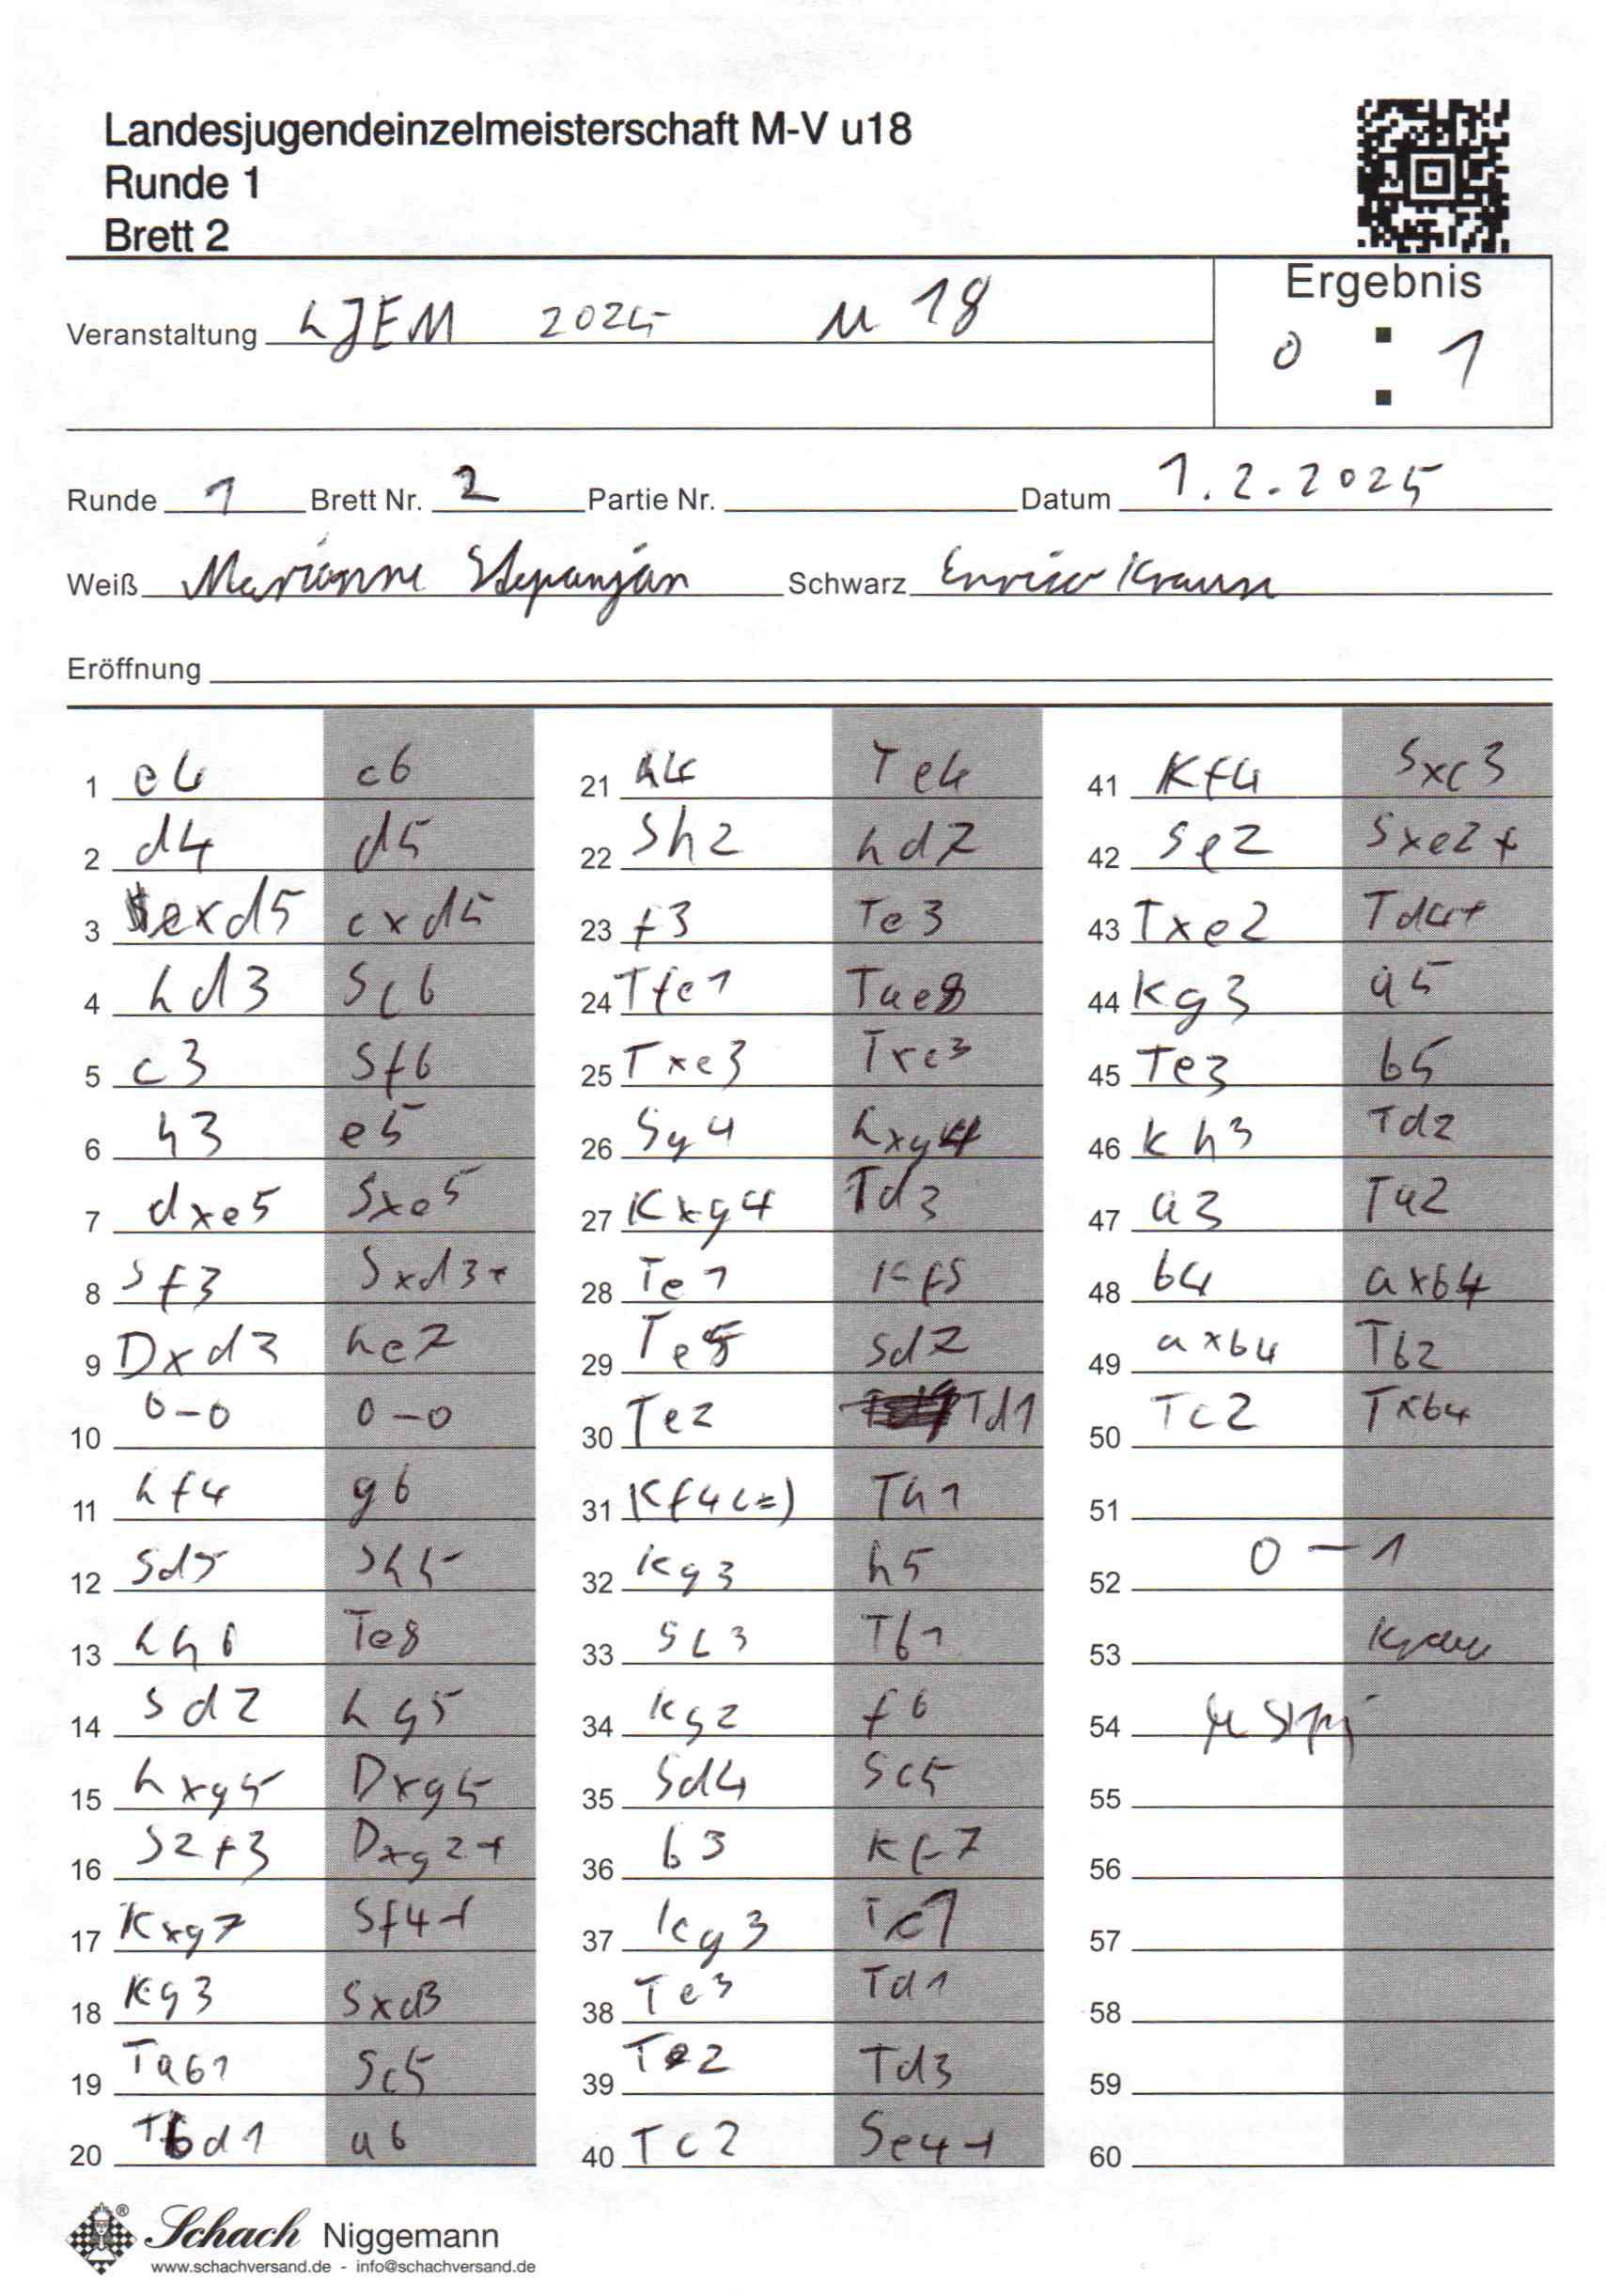 Landesjugendeinzelmeisterschaft M-V u18
Runde 1
Brett 2
Ergebnis
Veranstaltung LJEM 2025 u 18
0 : 1
Runde 1 Brett Nr. 2 Partie Nr. Datum 1.2.2025
Weiß Marianne Stepanjan Schwarz Enrico Krause
Eröffnung
1 e4 c6
2 d4 d5
3 exd5 cxd5
4 Ld3 Sc6
5 c3 Sf6
6 h3 e5
7 dxe5 Sxe5
8 Sf3 Sxd3+
9 Dxd3 Le7
10 0-0 0-0
11 Lf4 g6
12 Sd5 Sh5
13 Lh6 Te8
14 Sd2 Lg5
15 Lxg5 Dxg5
16 S2f3 Dxg2+
17 Kxg7 Sf4+
18 Kg3 Sxd3
19 Tab1 Sc5
20 Tbd1 a6
21 h4 Te4
22 Sh2 Ld7
23 f3 Te3
24 Tfe1 Tae8
25 Txe3 Txe3
26 Sg4 Lxg4
27 Kxg4 Td3
28 Te1 Kf8
29 Te5 Sd7
30 Te2 Td1
31 Kf4(=) Th1
32 Kg3 h5
33 Sc3 Tb1
34 Kg2 f6
35 Sd4 Sc5
36 b3 Kf7
37 Kg3 Tc1
38 Te3 Td1
39 Te2 Td3
40 Tc2 Se4+
41 Kf4 Sxc3
42 Se2 Sxe2+
43 Txe2 Td4+
44 Kg3 a5
45 Te3 b5
46 Kh3 Td2
47 a3 Ta2
48 b4 axb4
49 axb4 Tb2
50 Tc2 Txb4
51
52 0-1
53
54
55
56
57
58
59
60
Schach Niggemann
www.schachversand.de - info@schachversand.de